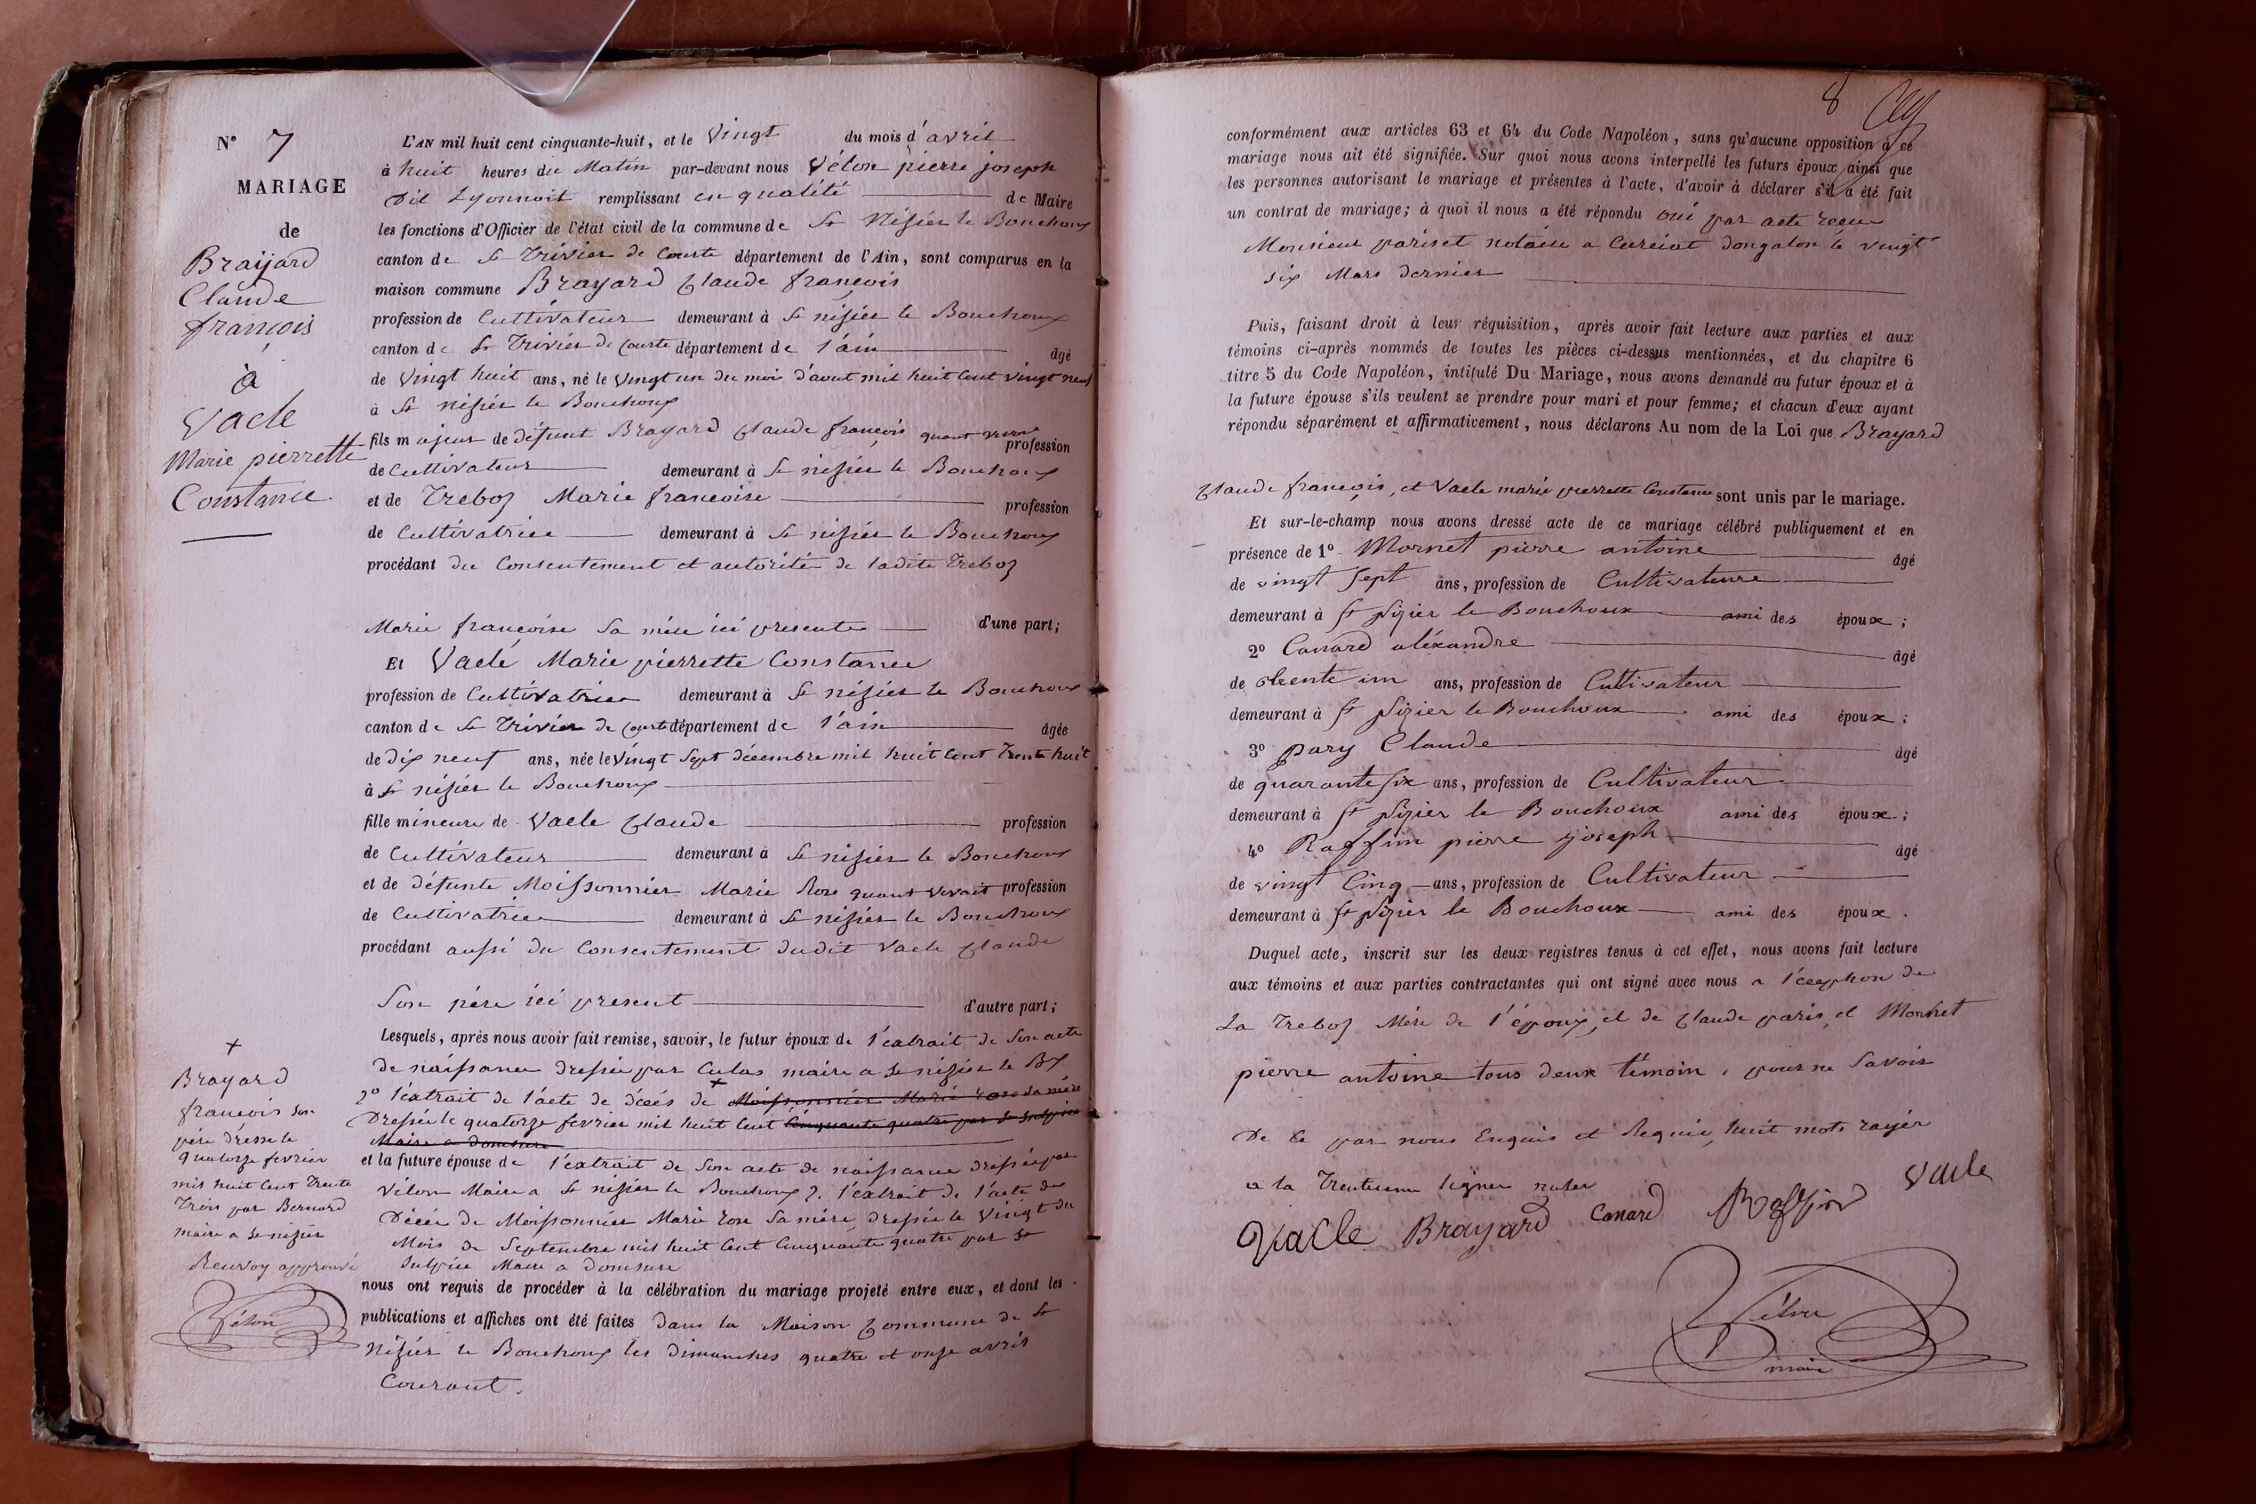 N° 7
MARIAGE
de
Brayard
Claude
françois
à
Vacle
Marie pierrette
Constance
L'AN mil huit cent cinquante-huit, et le Vingt du mois d'avril
à huit heures du Matin par-devant nous Vélon pierre joseph
Dit Lyonnoit remplissant en qualité de Maire
les fonctions d'Officier de l'état civil de la commune de St Nisier le Bouchoux
canton de St Trivier de Courte département de l'Ain, sont comparus en la
maison commune Brayard Claude françois
profession de Cultivateur demeurant à St nisier le Bouchoux
canton de St Trivier de Courte département de l'ain âgé
de Vingt huit ans, né le Vingt un du mois d'aout mil huit Cent Vingt neuf
à St nisier le Bouchoux
fils majeur de défunt Brayard Claude françois quant vivait profession
de Cultivateur demeurant à St nisier le Bouchoux
et de Treboz Marie françoise profession
de Cultivatrice demeurant à St nisier le Bouchoux
procédant du Consentement et autorité de ladite Treboz
Marie françoise Sa mère ici presente d'une part;
Et Vacle Marie pierrette Constance
profession de Cultivatrice demeurant à St nisier le Bouchoux
canton de St Trivier de Courte département de l'ain âgée
de dix neuf ans, née le Vingt Sept décembre mil huit Cent Trente huit
à St nisier le Bouchoux
fille mineure de Vacle Claude profession
de Cultivateur demeurant à St nisier le Bouchoux
et de défunte Moissonnier Marie Rose quant vivait profession
de Cultivatrice demeurant à St nisier le Bouchoux
procédant aussi du Consentement dudit Vacle Claude
Son père ici present d'autre part;
Lesquels, après nous avoir fait remise, savoir, le futur époux de l'extrait de Son acte
de naissance dressée par Culas maire a St nisier le Bx
2° l'extrait de l'acte de décés de + Moissonnier Marie rose sa mère
Dressée le quatorze fevrier mil huit Cent Cinquante quatre par St Sulpice
Maire a domsure
et la future épouse de l'extrait de Son acte de naissance dressée par
Vélon Maire a St nisier le Bouchoux 2. l'extrait de l'acte de
Décés de Moissonnier Marie rose Sa mère, dressée le Vingt du
Mois de Septembre mil huit Cent Cinquante quatre par St
Sulpice Maire a domsure
nous ont requis de procéder à la célébration du mariage projeté entre eux, et dont les
publications et affiches ont été faites dans la Maison Commune de St
Nisier le Bouchoux les dimanches quatre et onze avril
Courant.
+
Brayard
francois son
père dressé le
quatorze fevrier
mil huit Cent Trente
Trois par Bernard
maire a St nisier
Renvoy approuvé
Vélon
8
conformément aux articles 63 et 64 du Code Napoléon, sans qu'aucune opposition à ce
mariage nous ait été signifiée. Sur quoi nous avons interpellé les futurs époux ainsi que
les personnes autorisant le mariage et présentes à l'acte, d'avoir à déclarer s'il a été fait
un contrat de mariage; à quoi il nous a été répondu oui par acte recu
Monsieur pariset notaire a Curciat dongalon le vingt
six Mars dernier
Puis, faisant droit à leur réquisition, après avoir fait lecture aux parties et aux
témoins ci-après nommés de toutes les pièces ci-dessus mentionnées, et du chapitre 6
titre 5 du Code Napoléon, intitulé Du Mariage, nous avons demandé au futur époux et à
la future épouse s'ils veulent se prendre pour mari et pour femme; et chacun d'eux ayant
répondu séparément et affirmativement, nous déclarons Au nom de la Loi que Brayard
Claude françois, et Vacle marie pierrette Constance sont unis par le mariage.
Et sur-le-champ nous avons dressé acte de ce mariage célébré publiquement et en
présence de 1° Mornet pierre antoine âgé
de vingt Sept ans, profession de Cultivateure
demeurant à St Nizier le Bouchoux ami des époux;
2° Canard aléxandre âgé
de trente un ans, profession de Cultivateur
demeurant à St Nizier le Bouchoux ami des époux;
3° pary Claude âgé
de quarante six ans, profession de Cultivateur
demeurant à St Nizier le Bouchoux ami des époux;
4° Raffin pierre joseph âgé
de vingt Cinq ans, profession de Cultivateur
demeurant à St Nizier le Bouchoux ami des époux.
Duquel acte, inscrit sur les deux registres tenus à cet effet, nous avons fait lecture
aux témoins et aux parties contractantes qui ont signé avec nous a l'cephon de
La Treboz Mère de l'époux, et de Claude paris, et Monnet
pierre antoine tous deux témoin, pour ne Savoir
De Ce par nous Enquis et Requis, huit mots rayér
a la Trentieme ligne nuler
Vacle Brayard Canard Raffin Vacle
Vélon
maire